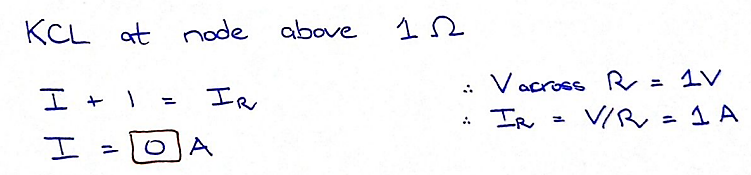 KCL at node above 1 Ω
I + 1 = I_R
I = 0 A
∴ V across R = 1V
∴ I_R = V/R = 1 A